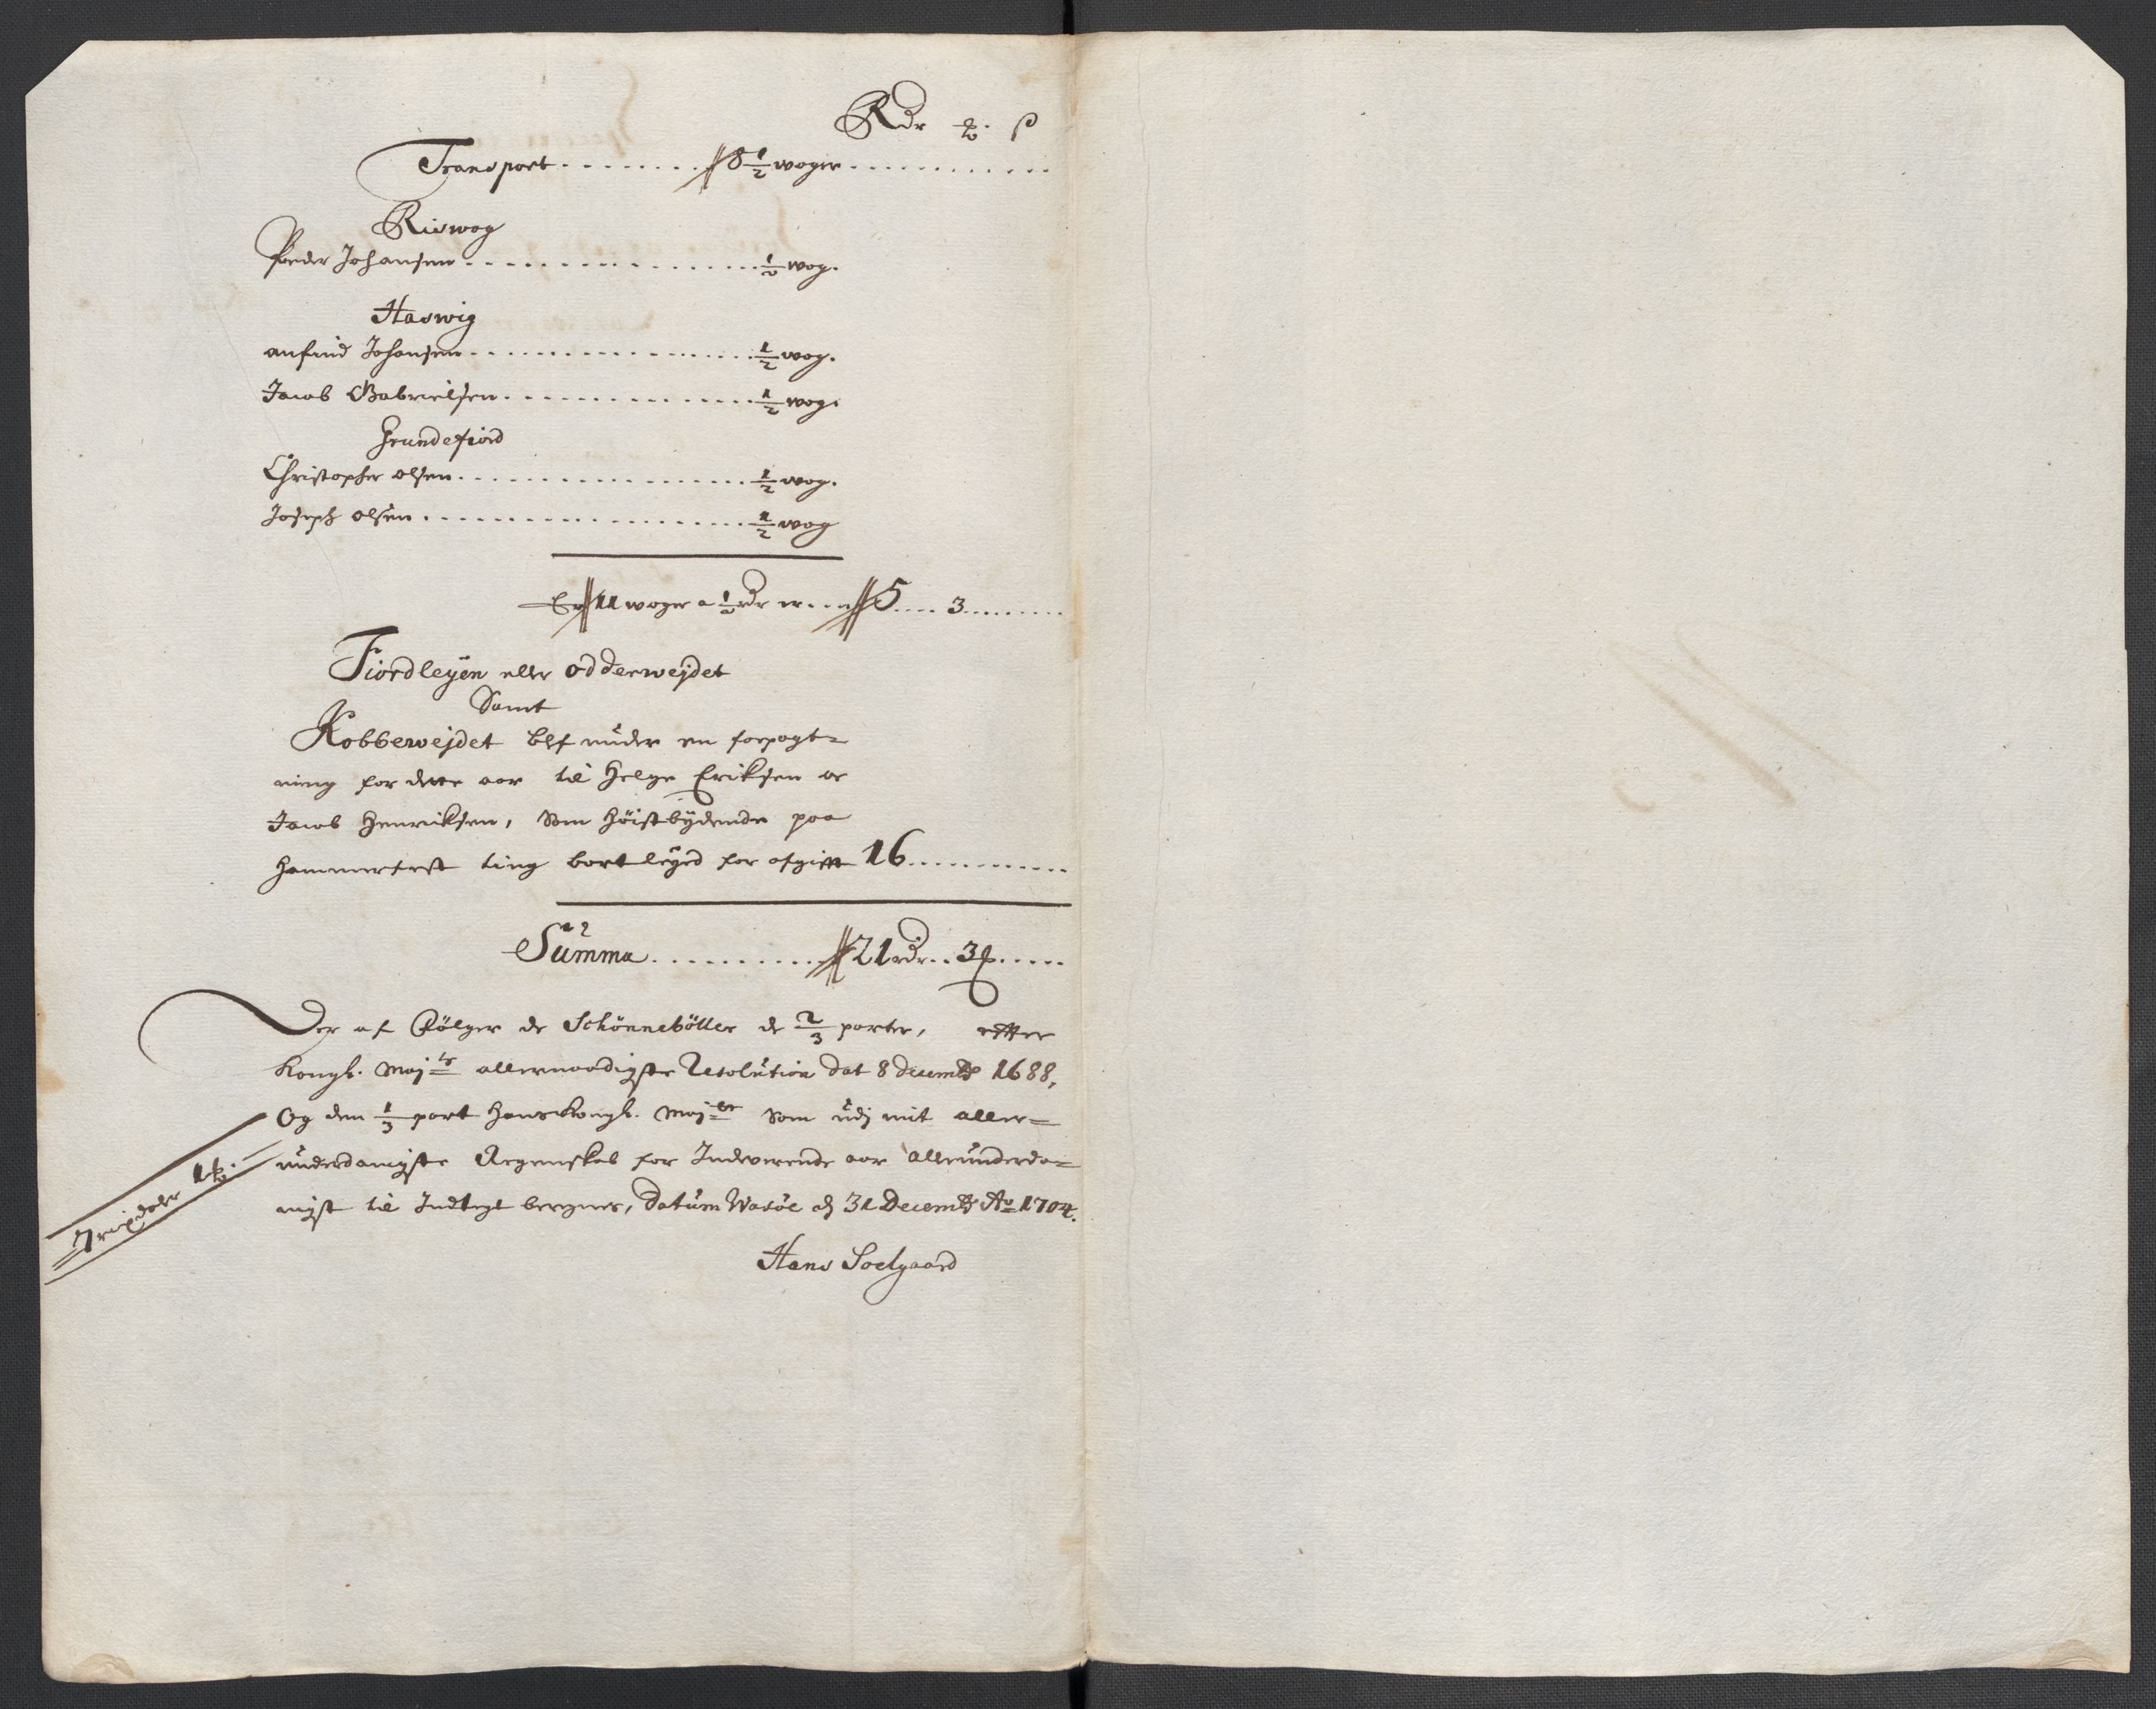 Rdr ℔. ß
Transport . . . . . . . 8 1/2 woger . . . . . . . . . . .
Riswog
Peder Johansen . . . . . . . . . . . . . . . . 1/2 wog.
Haswig
anfind Johansen . . . . . . . . . . . . . . . . 1/2 wog.
Jacob Gabrielsen . . . . . . . . . . . . . . 1/2 wog.
Grundefiord
Christopher olsen . . . . . . . . . . . . . . . . 1/2 wog.
Joseph olsen . . . . . . . . . . . . . . . . . . 1/2 wog
Er 11 woger a 1/2 rdr er . . . 5 . . . . 3 . . . . . . . .
Fiordleyen eller odderwejdet
Samt
Kobbewejdet blef under en forpagt=
ning for dette aar til Helge Eriksen oc
Jacob Henriksen, Som Höistbydende paa
Hammerfest ting bortleyed for afgifft 16 . . . . . . . . . . .
Summa . . . . . . . . . . 21 rdr . . 3 . . . . .
Der af Fölger de Schönneböller de 2/3 parter, effter
Kongl. Majts allernaadigste Resolution dat 8 decembr 1688,
Og den 1/3 part Hans Kongl. Majtt Som udj mit aller=
underdanigste Regenskab for Indewerende aar allerunderda=
nigst til Indtegt beregnes, Datum Wasöe dj 31 Decembr Ao 1704.
Hans Soelgaard